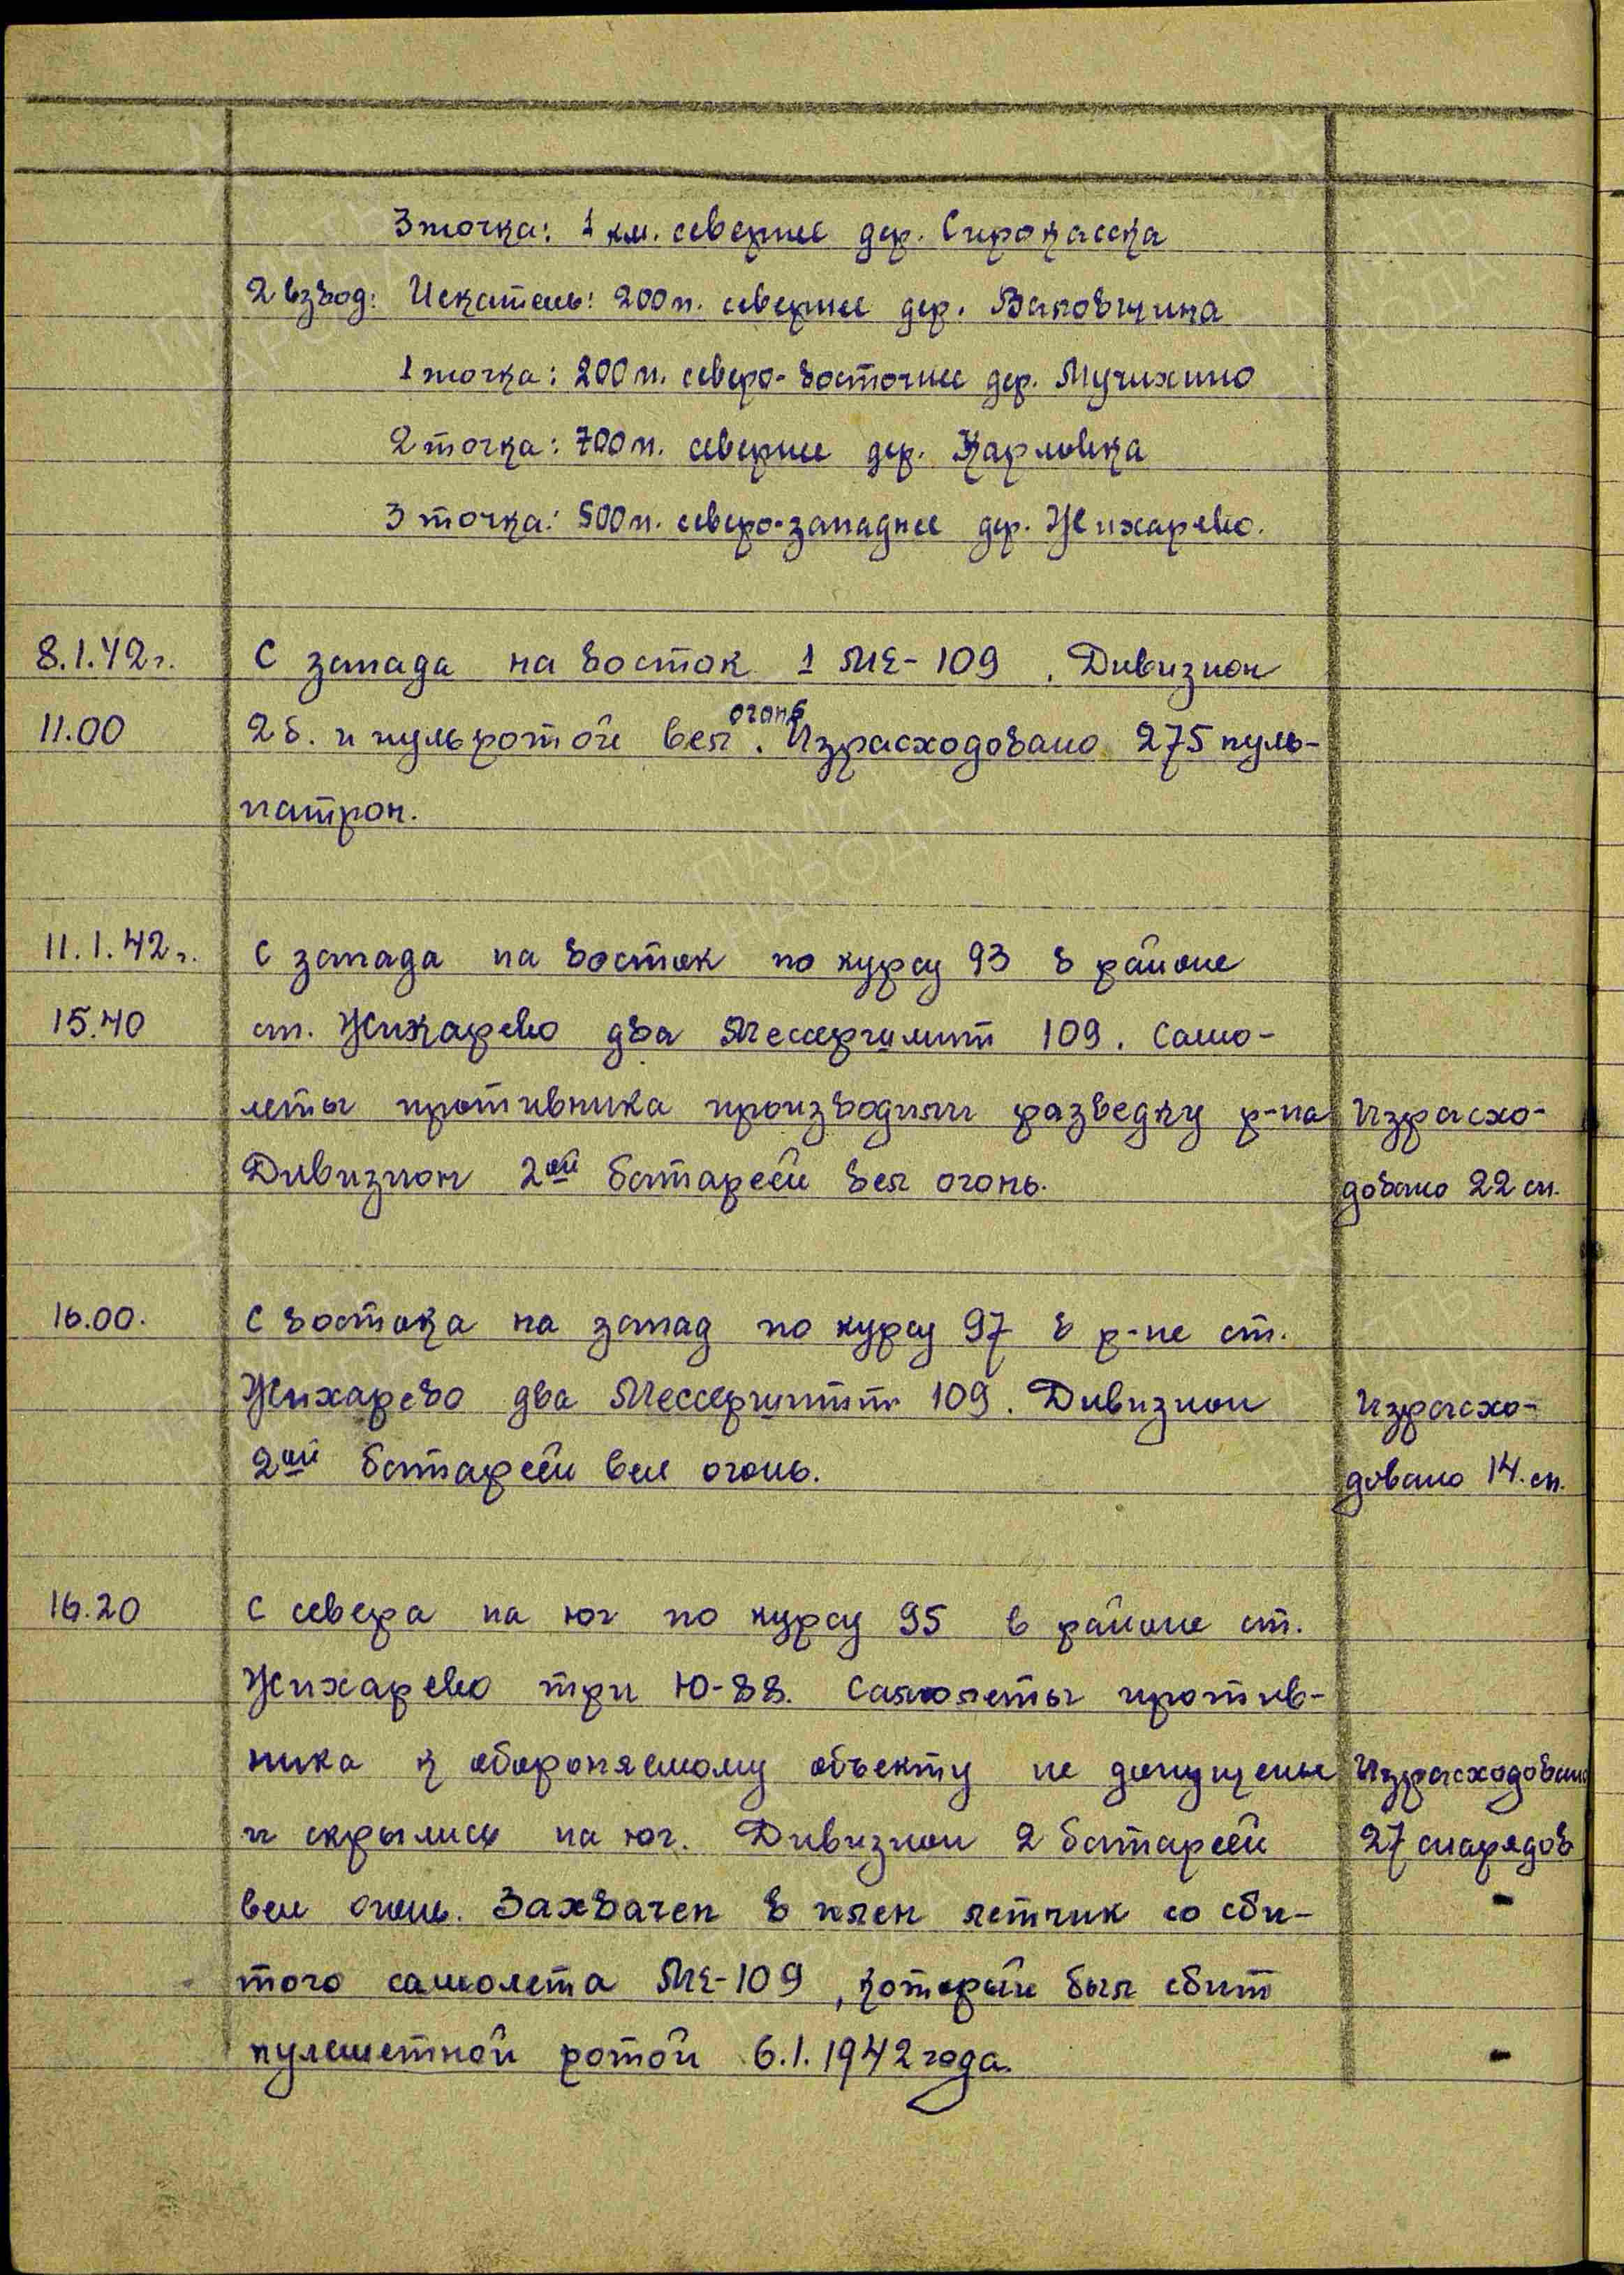 3 точка: 1 км. севернее дер. Сирокасска
2 взвод: Искатель: 200 м. севернее дер. Валовщина
1 точка: 200 м. северо-восточнее дер. Мучихино
2 точка: 700 м. севернее дер. Карловка
3 точка: 500 м. северо-западнее дер. Жихарево.
8.1.42 г. С запада на восток 1 МЕ-109. Дивизион
11.00 2 б. и пульротой вел огонь. Израсходовано 275 пуль-
патрон.
11.1.42 г. С запада на восток по курсу 93 в районе
15.40 ст. Жихарево два Мессершмит 109. Само-
леты противника производили разведку р-на Израсхо-
Дивизион 2ой батареей вел огонь. довано 22 сн.
16.00. С востока на запад по курсу 97 в р-не ст.
Жихарево два Мессершмитт 109. Дивизион Израсхо-
2ой батареей вел огонь. довано 14. сн.
16.20 С севера на юг по курсу 95 в районе ст.
Жихарево три Ю-88. Самолеты против-
ника к обороняемому объекту не допущены Израсходовано
и скрылись на юг. Дивизион 2 батареей 27 снарядов
вел огонь. Захвачен в плен летчик со сби-
того самолета МЕ-109, который был сбит
пулеметной ротой 6.1.1942 года.
ПАМЯТЬ
НАРОДА